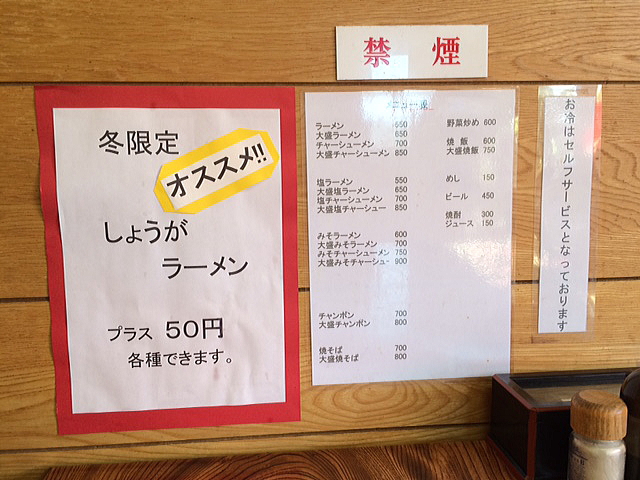 禁 煙
冬限定
オススメ!!
しょうが
ラーメン
プラス 50円
各種できます。
メニュー表
ラーメン 550
大盛ラーメン 650
チャーシューメン 700
大盛チャーシーメン 850
塩ラーメン 550
大盛塩ラーメン 650
塩チャーシューメン 700
大盛塩チャーシュー 850
みそラーメン 600
大盛みそラーメン 700
みそチャーシーメン 750
大盛みそチャーシュー 900
チャンポン 700
大盛チャンポン 800
焼そば 700
大盛焼そば 800
野菜炒め 600
焼 飯 600
大盛焼飯 750
めし 150
ビール 450
焼酎 300
ジュース 150
お冷はセルフサービスとなっております